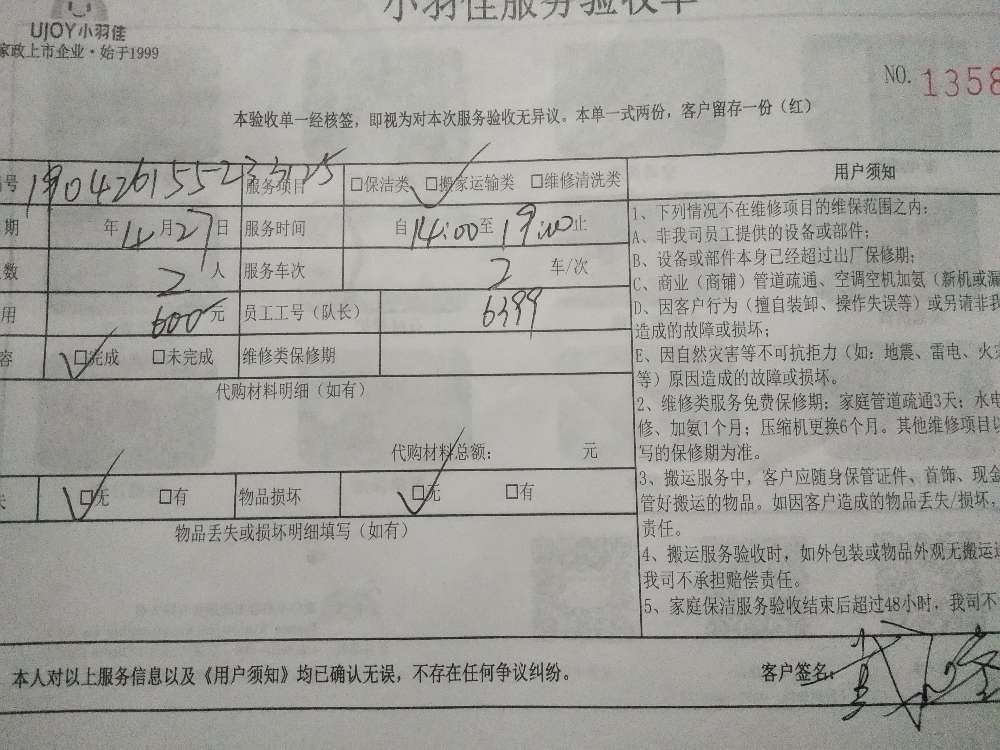 小羽佳服务验收单
UJOY小羽佳
家政上市企业·始于1999
NO. 1358
本验收单一经核签，即视为对本次服务验收无异议。本单一式两份，客户留存一份（红）
号 190426155233125 服务项目 □保洁类 □搬家运输类 □维修清洗类 用户须知
期 年4月27日 服务时间 自14:00至19:00止
数 2人 服务车次 2 车/次
用 600元 员工工号（队长） 6399
容 □完成 □未完成 维修类保修期
代购材料明细（如有）
代购材料总额： 元
失 □无 □有 物品损坏 □无 □有
物品丢失或损坏明细填写（如有）
1、下列情况不在维修项目的维保范围之内：
A、非我司员工提供的设备或部件；
B、设备或部件本身已经超过出厂保修期；
C、商业（商铺）管道疏通、空调空机加氨（新机或漏
D、因客户行为（擅自装卸、操作失误等）或另请非我
造成的故障或损坏；
E、因自然灾害等不可抗拒力（如：地震、雷电、火灾
等）原因造成的故障或损坏。
2、维修类服务免费保修期：家庭管道疏通3天；水电
修、加氨1个月；压缩机更换6个月。其他维修项目以
写的保修期为准。
3、搬运服务中，客户应随身保管证件、首饰、现金
管好搬运的物品。如因客户造成的物品丢失/损坏，
责任。
4、搬运服务验收时，如外包装或物品外观无搬运
我司不承担赔偿责任。
5、家庭保洁服务验收结束后超过48小时，我司不
本人对以上服务信息以及《用户须知》均已确认无误，不存在任何争议纠纷。 客户签名：